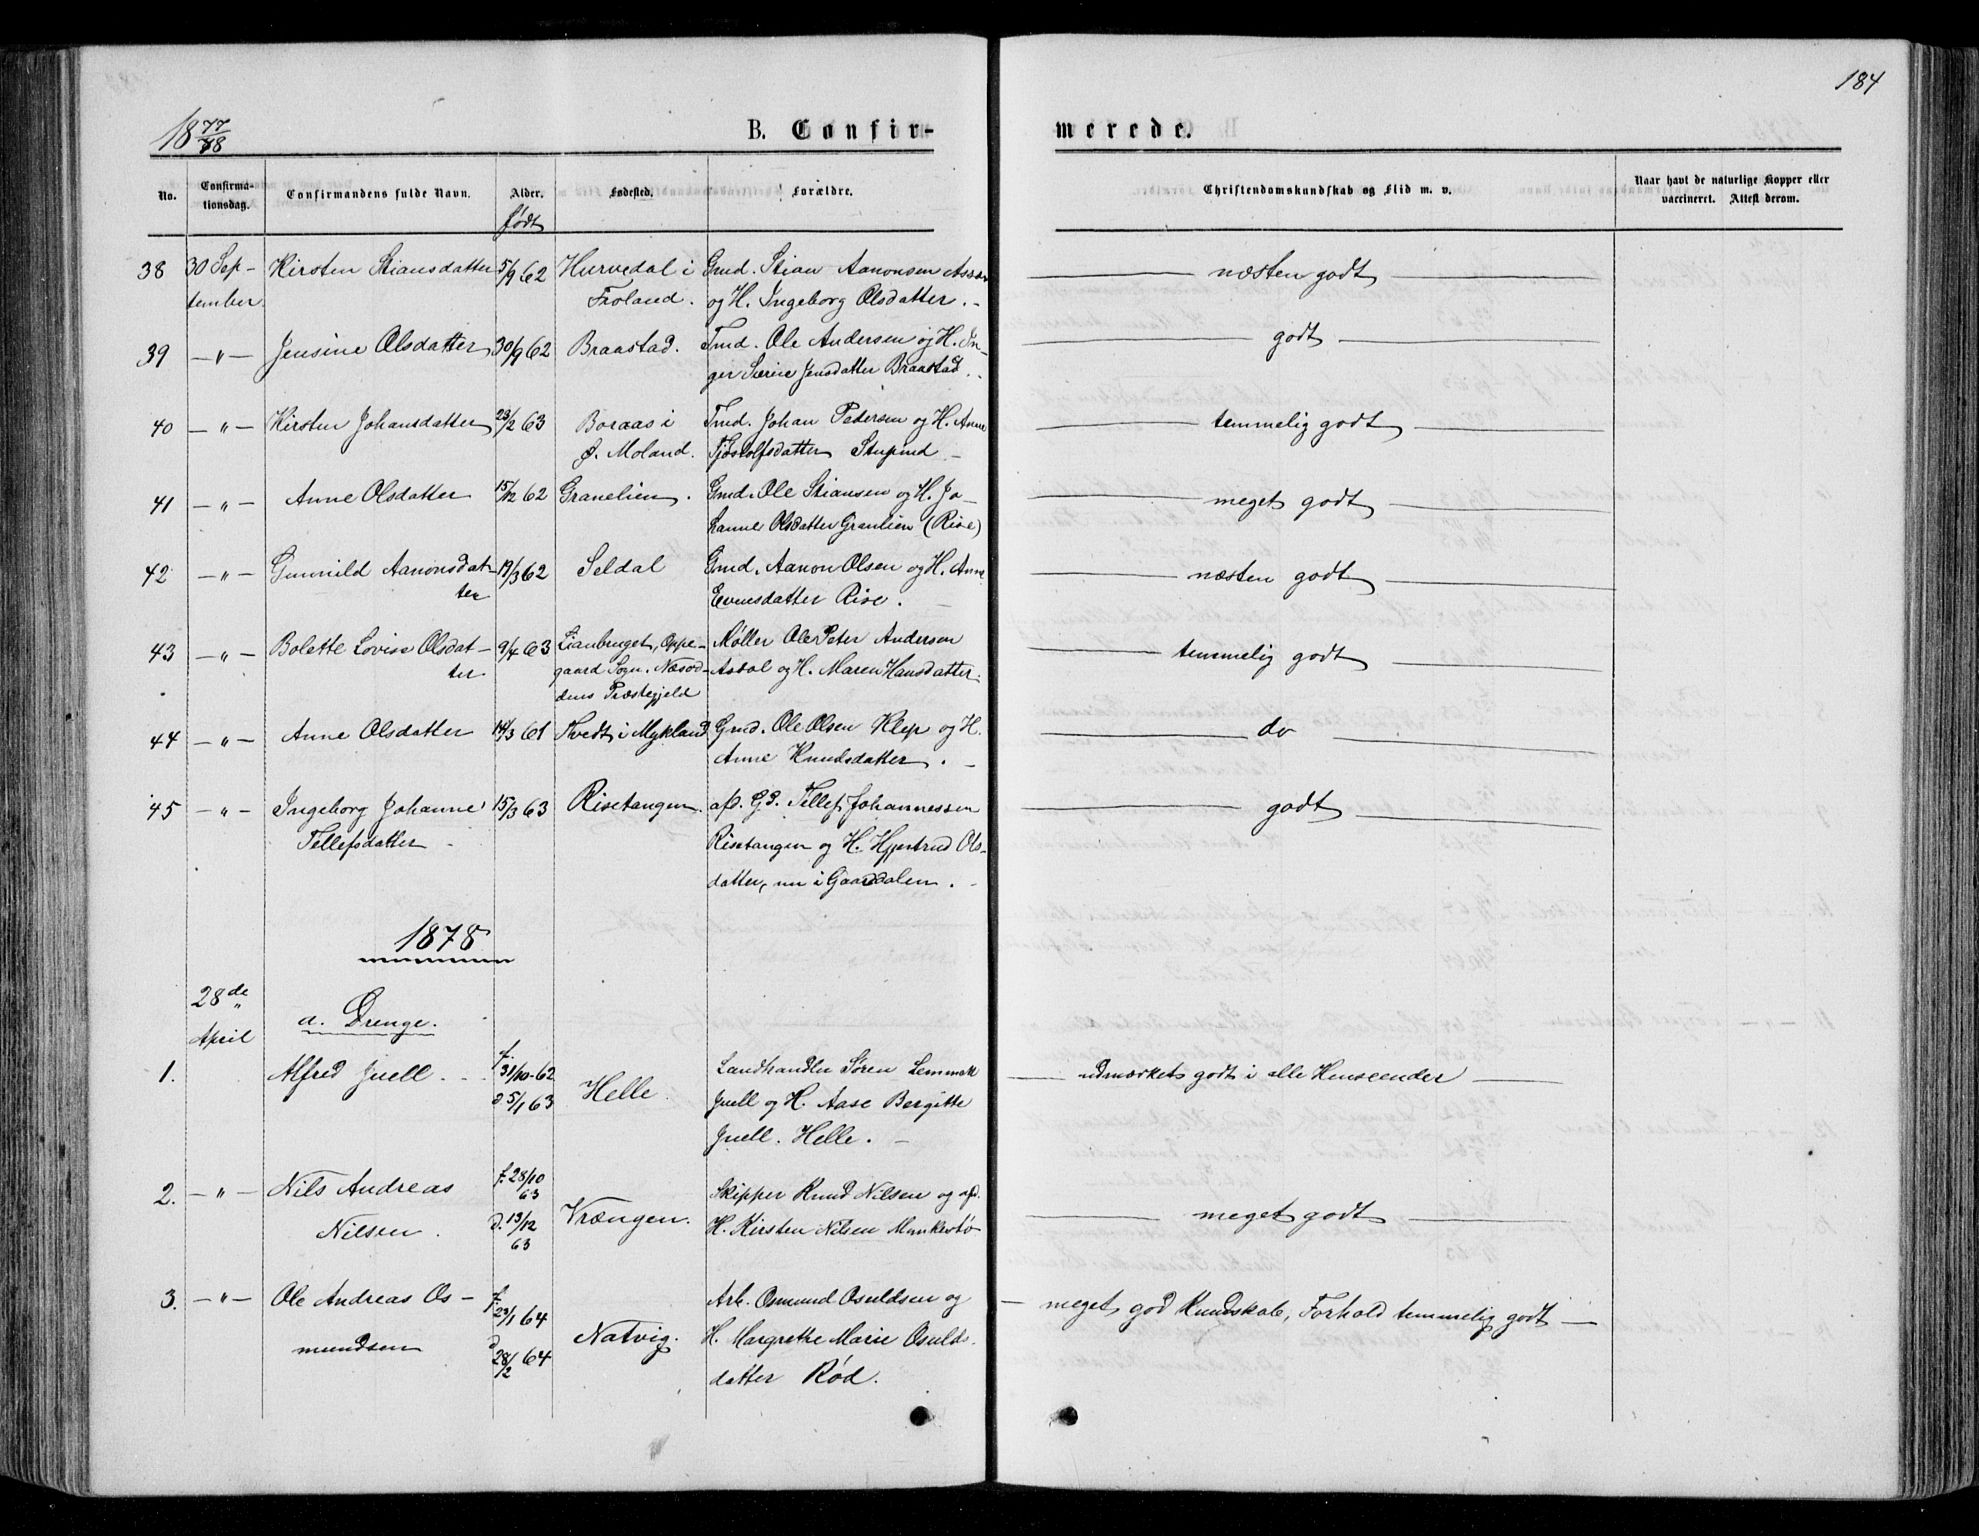 184
18 77/78
B. Confir-
merede.
No.
Confirma-
tionsdag.
Confirmandens fulde Navn.
Alder.
født
Fødested.
Forældre.
Christendomskundskab og Flid m. v.
Naar havt de naturlige Kopper eller
vaccineret. Attest derom.
38 30 Sep- Kirsten Stiansdatter 5/9 62 Hurvedal i Gmd. Stian Aanonsen næsten godt
tember. Froland. og H. Ingeborg Olsdatter.
39 — " — Jensine Olsdatter 30/9 62 Braastad. Tmd. Ole Andersen og H. In- godt
ger Serine Jensdatter Braastad.
40 — " — Kirsten Johansdatter 23/2 63 Boraas i Tmd. Johan Pedersen og H. Anne temmelig godt
Ø. Moland. Tjøstolfsdatter
41 — " — Anne Olsdatter 15/12 62 Granelien. Gmd. Ole Stiansen og H. Jo- meget godt
hanne Olsdatter Granlien (Rise)
42 — " — Gunnild Aanonsdat- 19/3 62 Seldal Gmd. Aanon Olsen og H. Anne næsten godt
ter Evensdatter Rise.
43 — " — Bolette Lovise Olsdat- 9/4 63 Lianbruget, Oppe- Møller Ole Peter Andersen temmelig godt
ter gaard Sogn. Næsod- Asdal og H. Maren Hansdatter.
dens Præstegjeld
44 — " — Anne Olsdatter 14/3 61 Tvedt i Mykland Gmd. Ole Olsen Klep og H. do
Anne Knudsdatter.
45 — " — Ingeborg Johanne 15/3 63 Risetangen. afd. Gd. Tellef Johannessen godt
Tellefsdatter Risetangen og H. Hjertrud Ols-
datter, nu i Gaarddalen.
1878
28de
April
a. Drenge.
1. Alfred Juell. f. 31/10-62 Helle. Landhandler Søren Lemmek udmærket godt i alle Henseender
d 5/1 63 Juell og H. Aase Bergitte
Juell. Helle.
2. — " — Nils Andreas f. 28/10 63 Vrængen. Skipper Knud Nilsen og afd. meget godt
Nilsen. d. 13/12 63 H. Kirsten Nilsen Munkestø
3. — " — Ole Andreas Os- f. 23/1 64 Natvig. Arb. Osmund Osuldsen og meget god Kundskab, Forhold temmelig godt
mundsen d 28/2 64 H. Margrethe Marie Osulds-
datter Rød.